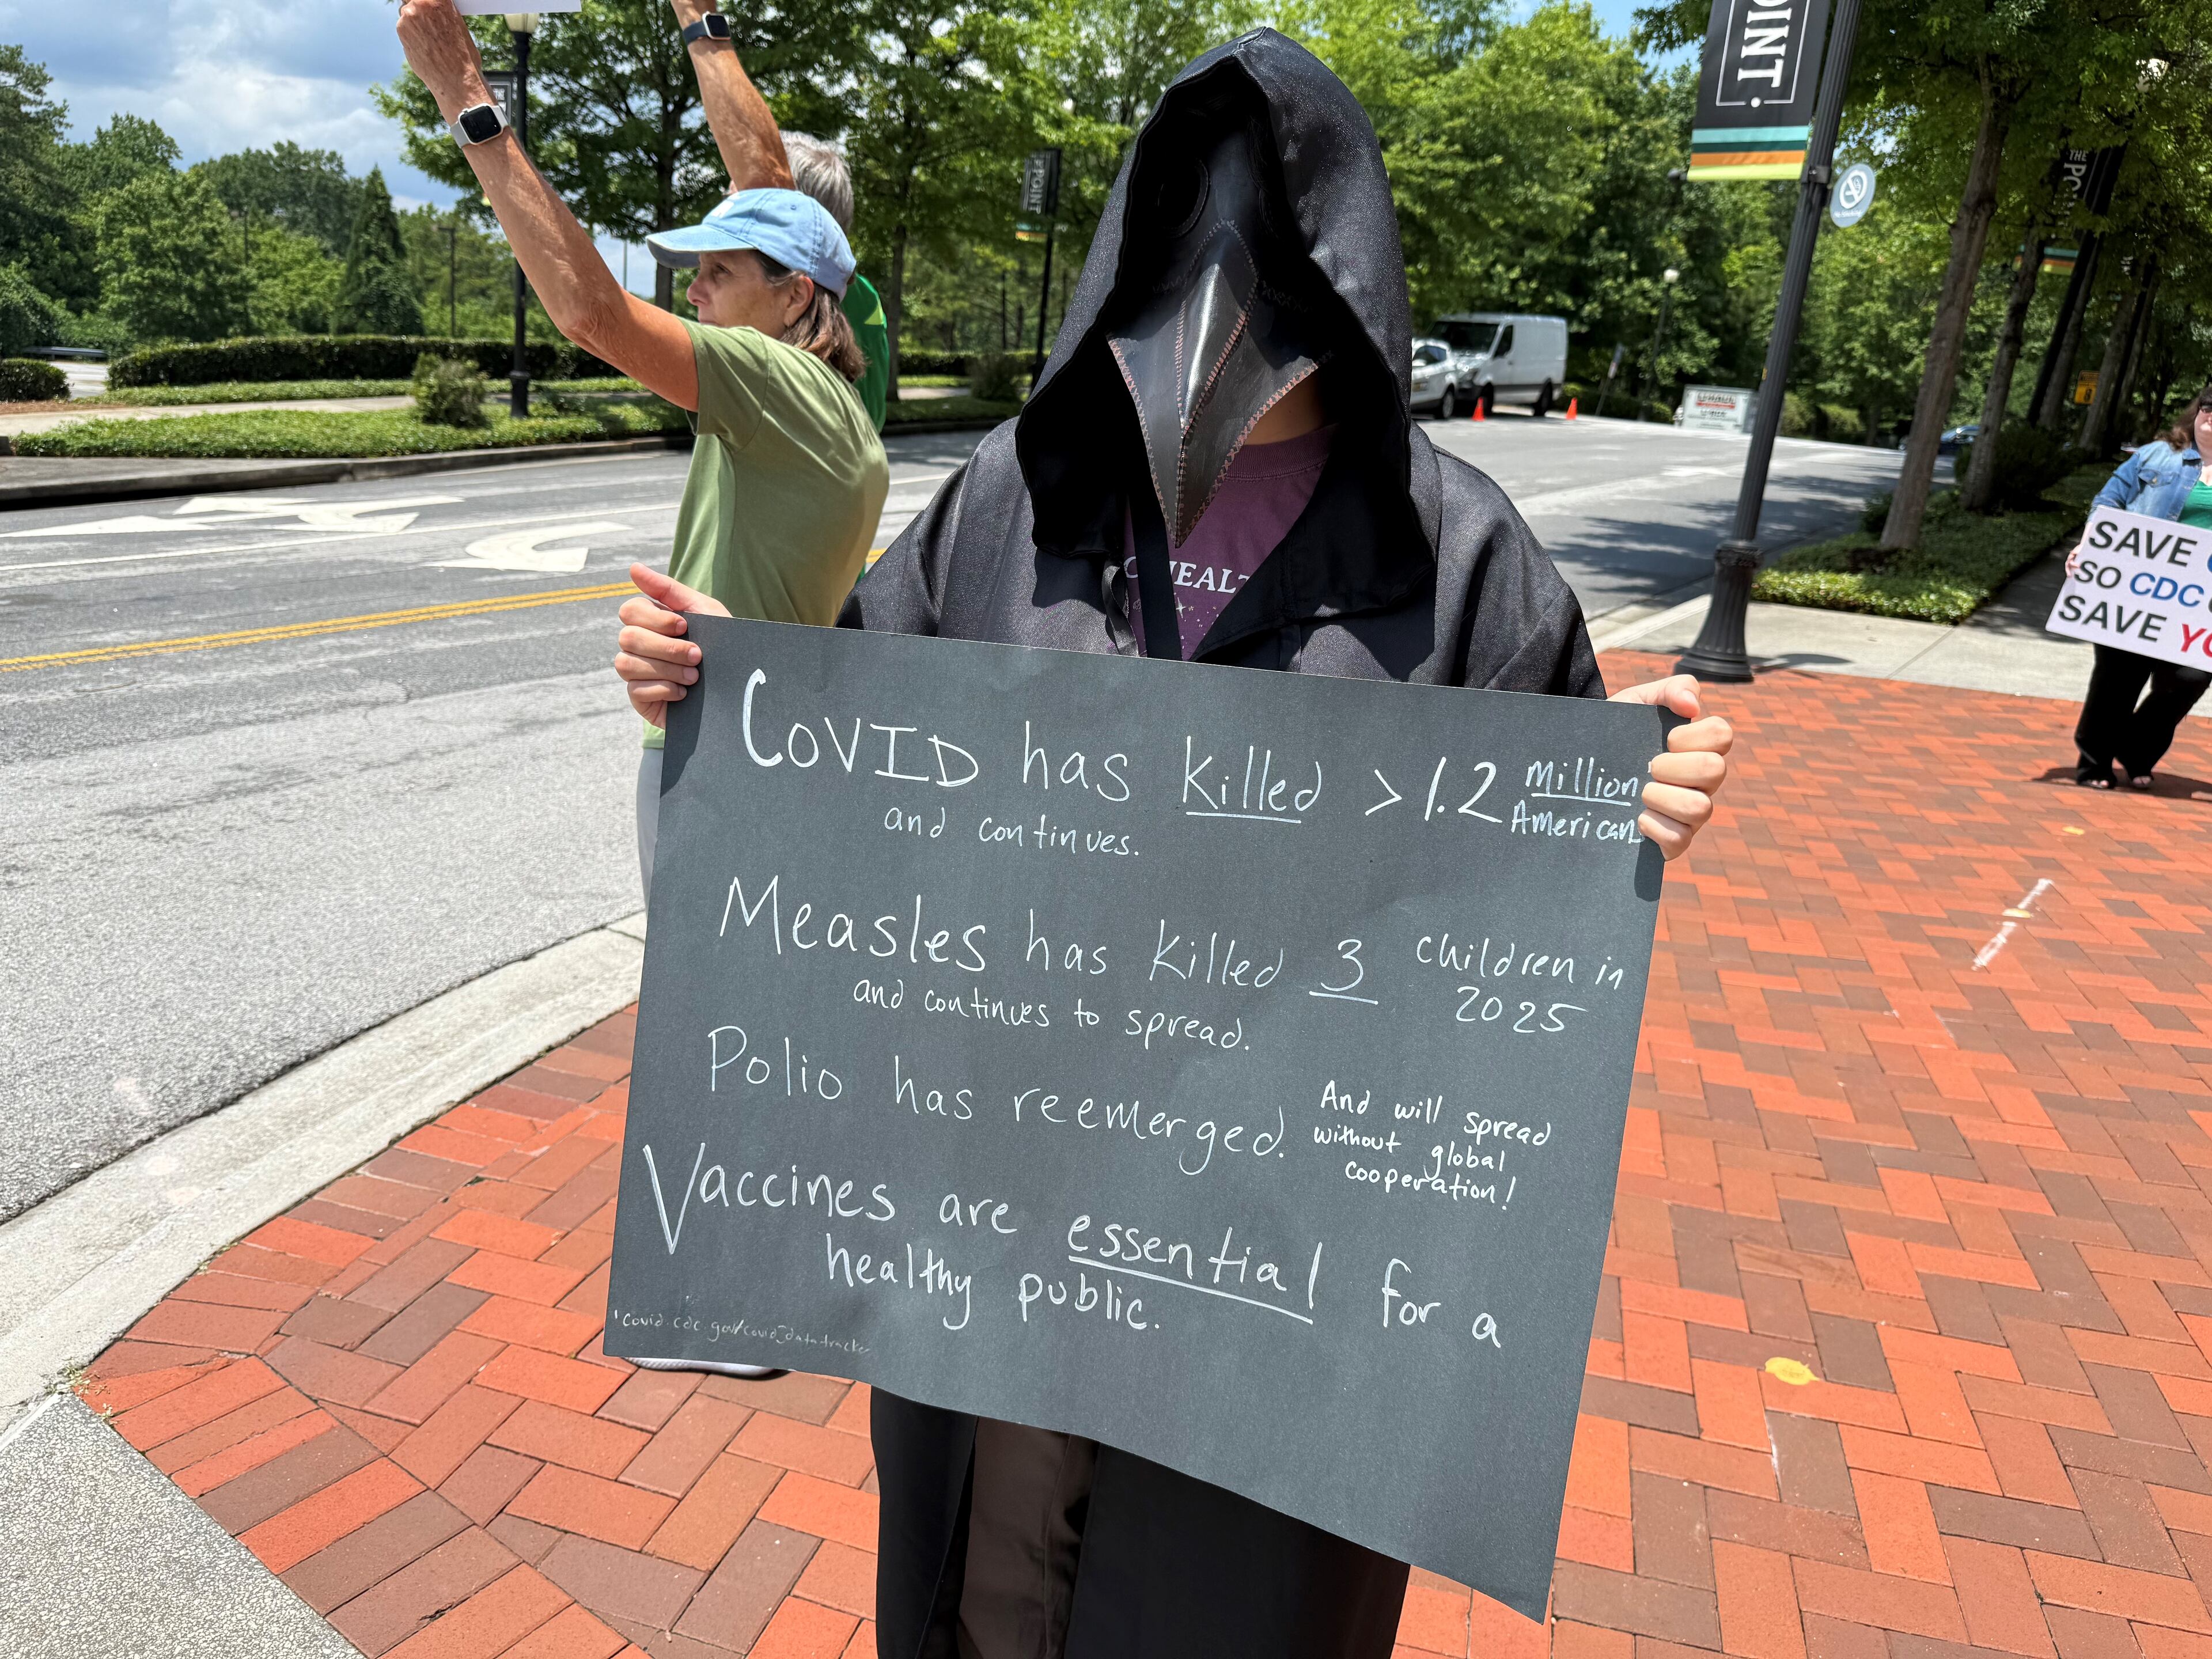 POINT.
THE
POINT
SAVE
SO CDC
SAVE
COVID has killed >1.2 million
Americans
and continues.
Measles has killed 3 children in
2025
and continues to spread.
Polio has reemerged. And will spread
without global
cooperation!
Vaccines are essential for a
healthy public.
covid.cdc.gov/covid_data-tracker